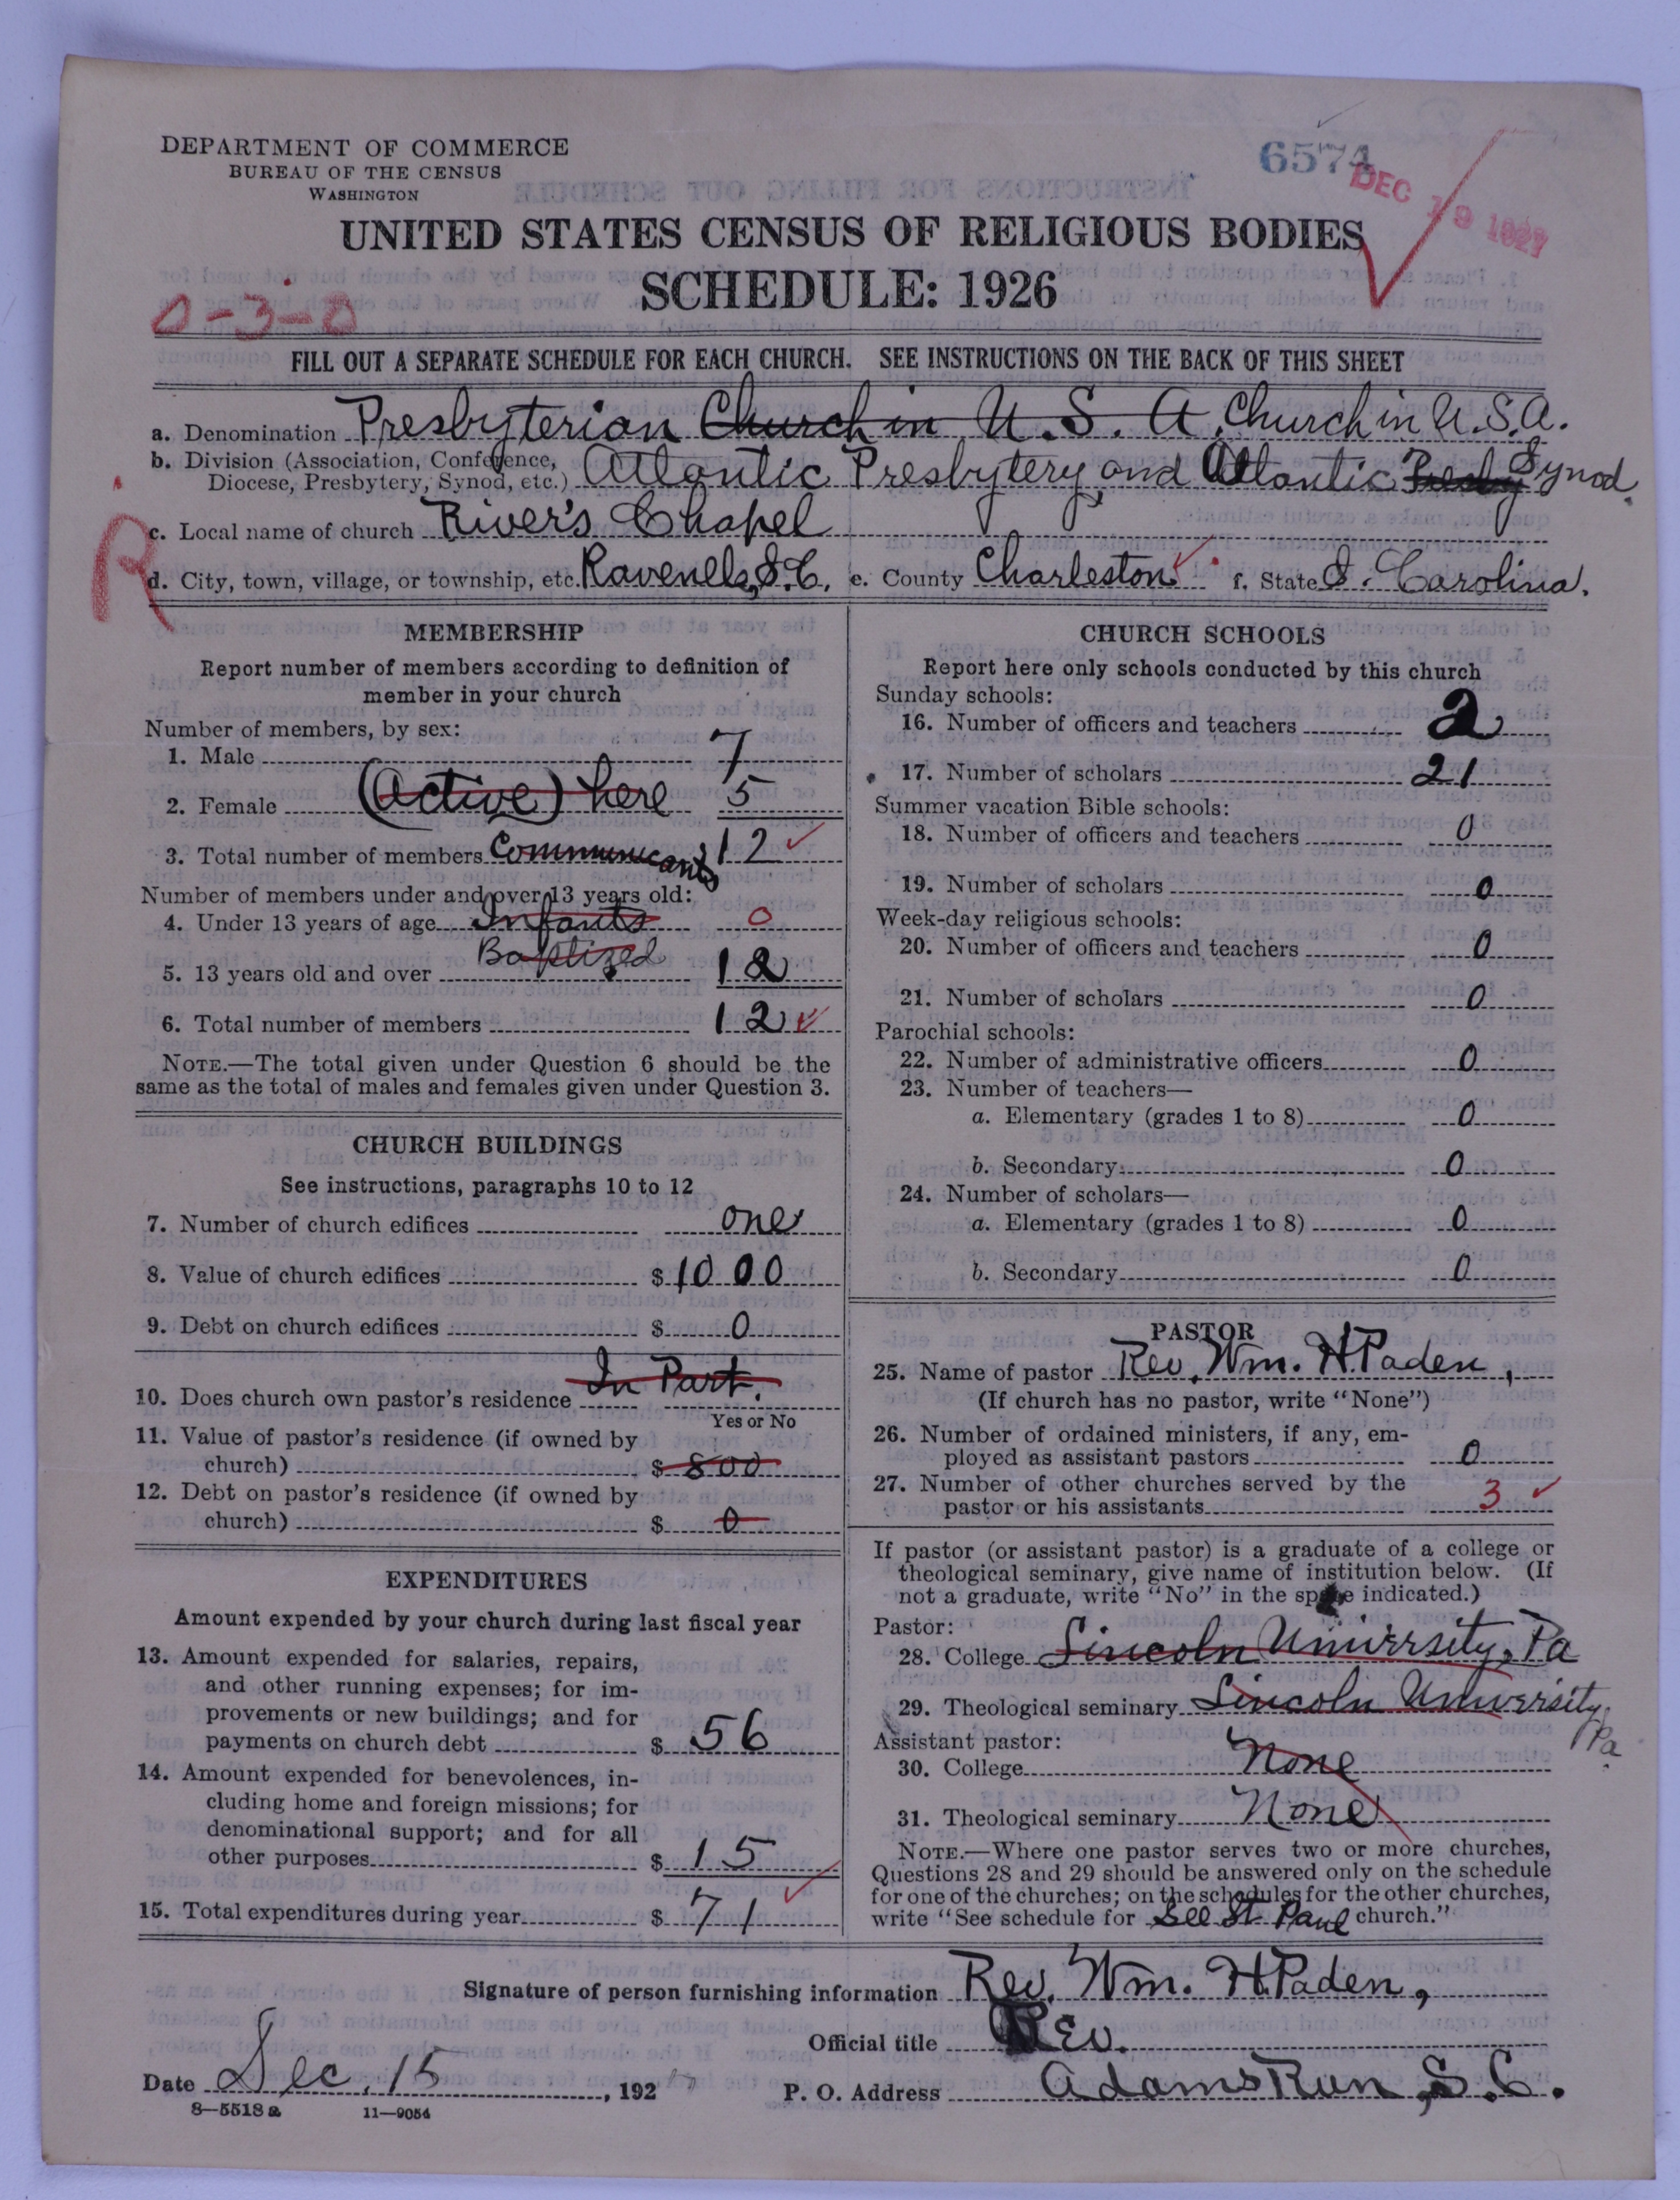 DEPARTMENT OF COMMERCE
BUREAU OF THE CENSUS
WASHINGTON
6574
DEC 19 1927
UNITED STATES CENSUS OF RELIGIOUS BODIES
SCHEDULE: 1926
0-3-0
FILL OUT A SEPARATE SCHEDULE FOR EACH CHURCH. SEE INSTRUCTIONS ON THE BACK OF THIS SHEET
a. Denomination Presbyterian Church in U.S.A. Church in U.S.A.
b. Division (Association, Conference, Diocese, Presbytery, Synod, etc.) Atlantic Presbytery and Atlantic Presby Synod.
R
c. Local name of church River's Chapel
d. City, town, village, or township, etc. Ravenels, S.C. e. County Charleston f. State S. Carolina.
MEMBERSHIP
Report number of members according to definition of
member in your church
Number of members, by sex:
1. Male 7
2. Female (Active) here 5
3. Total number of members Communicants 12
Number of members under and over 13 years old:
4. Under 13 years of age Infants 0
Baptized
5. 13 years old and over 12
6. Total number of members 12
NOTE.—The total given under Question 6 should be the
same as the total of males and females given under Question 3.
CHURCH BUILDINGS
See instructions, paragraphs 10 to 12
7. Number of church edifices one
8. Value of church edifices $1000
9. Debt on church edifices $ 0
In Part.
10. Does church own pastor's residence
Yes or No
11. Value of pastor's residence (if owned by
church) $ 800
12. Debt on pastor's residence (if owned by
church) $ 0
EXPENDITURES
Amount expended by your church during last fiscal year
13. Amount expended for salaries, repairs,
and other running expenses; for im-
provements or new buildings; and for
payments on church debt $ 56
14. Amount expended for benevolences, in-
cluding home and foreign missions; for
denominational support; and for all
other purposes $ 15
15. Total expenditures during year $ 71
CHURCH SCHOOLS
Report here only schools conducted by this church
Sunday schools:
16. Number of officers and teachers 2
17. Number of scholars 21
Summer vacation Bible schools:
18. Number of officers and teachers 0
19. Number of scholars 0
Week-day religious schools:
20. Number of officers and teachers 0
21. Number of scholars 0
Parochial schools:
22. Number of administrative officers 0
23. Number of teachers—
a. Elementary (grades 1 to 8) 0
b. Secondary 0
24. Number of scholars—
a. Elementary (grades 1 to 8) 0
b. Secondary 0
PASTOR
25. Name of pastor Rev. Wm. H. Paden,
(If church has no pastor, write "None")
26. Number of ordained ministers, if any, em-
ployed as assistant pastors 0
27. Number of other churches served by the
pastor or his assistants 3
If pastor (or assistant pastor) is a graduate of a college or
theological seminary, give name of institution below. (If
not a graduate, write "No" in the space indicated.)
Pastor:
28. College Lincoln University, Pa
29. Theological seminary Lincoln University, Pa.
Assistant pastor:
30. College None
31. Theological seminary None
NOTE.—Where one pastor serves two or more churches,
Questions 28 and 29 should be answered only on the schedule
for one of the churches; on the schedules for the other churches,
write "See schedule for See St. Paul church."
Signature of person furnishing information Rev. Wm. H. Paden,
Official title Rev.
Date Dec. 15, 192
P. O. Address Adams Run, S.C.
8—5518 a 11—9054